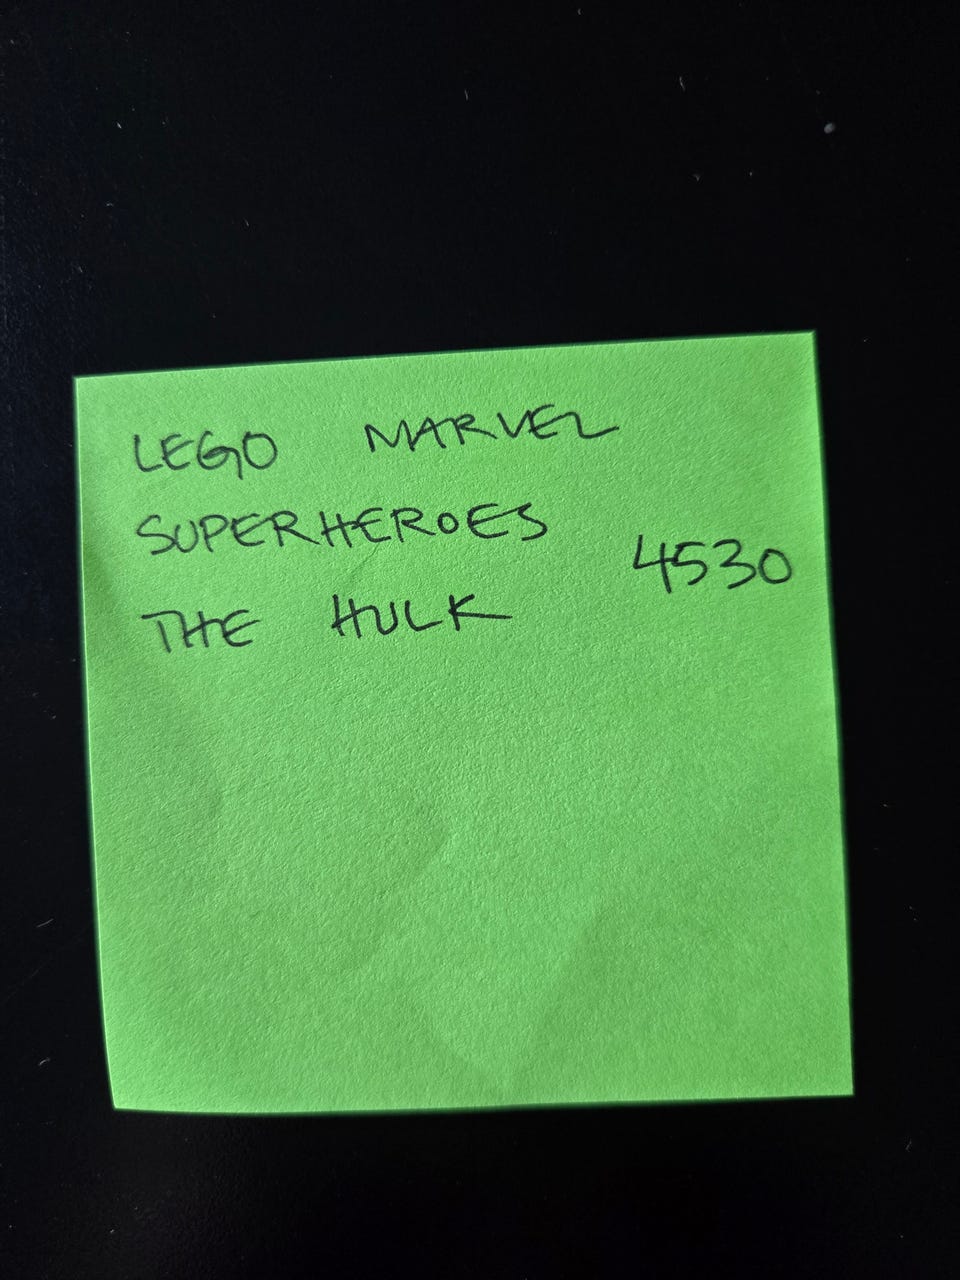 LEGO MARVEL
SUPERHEROES
4530
THE HULK